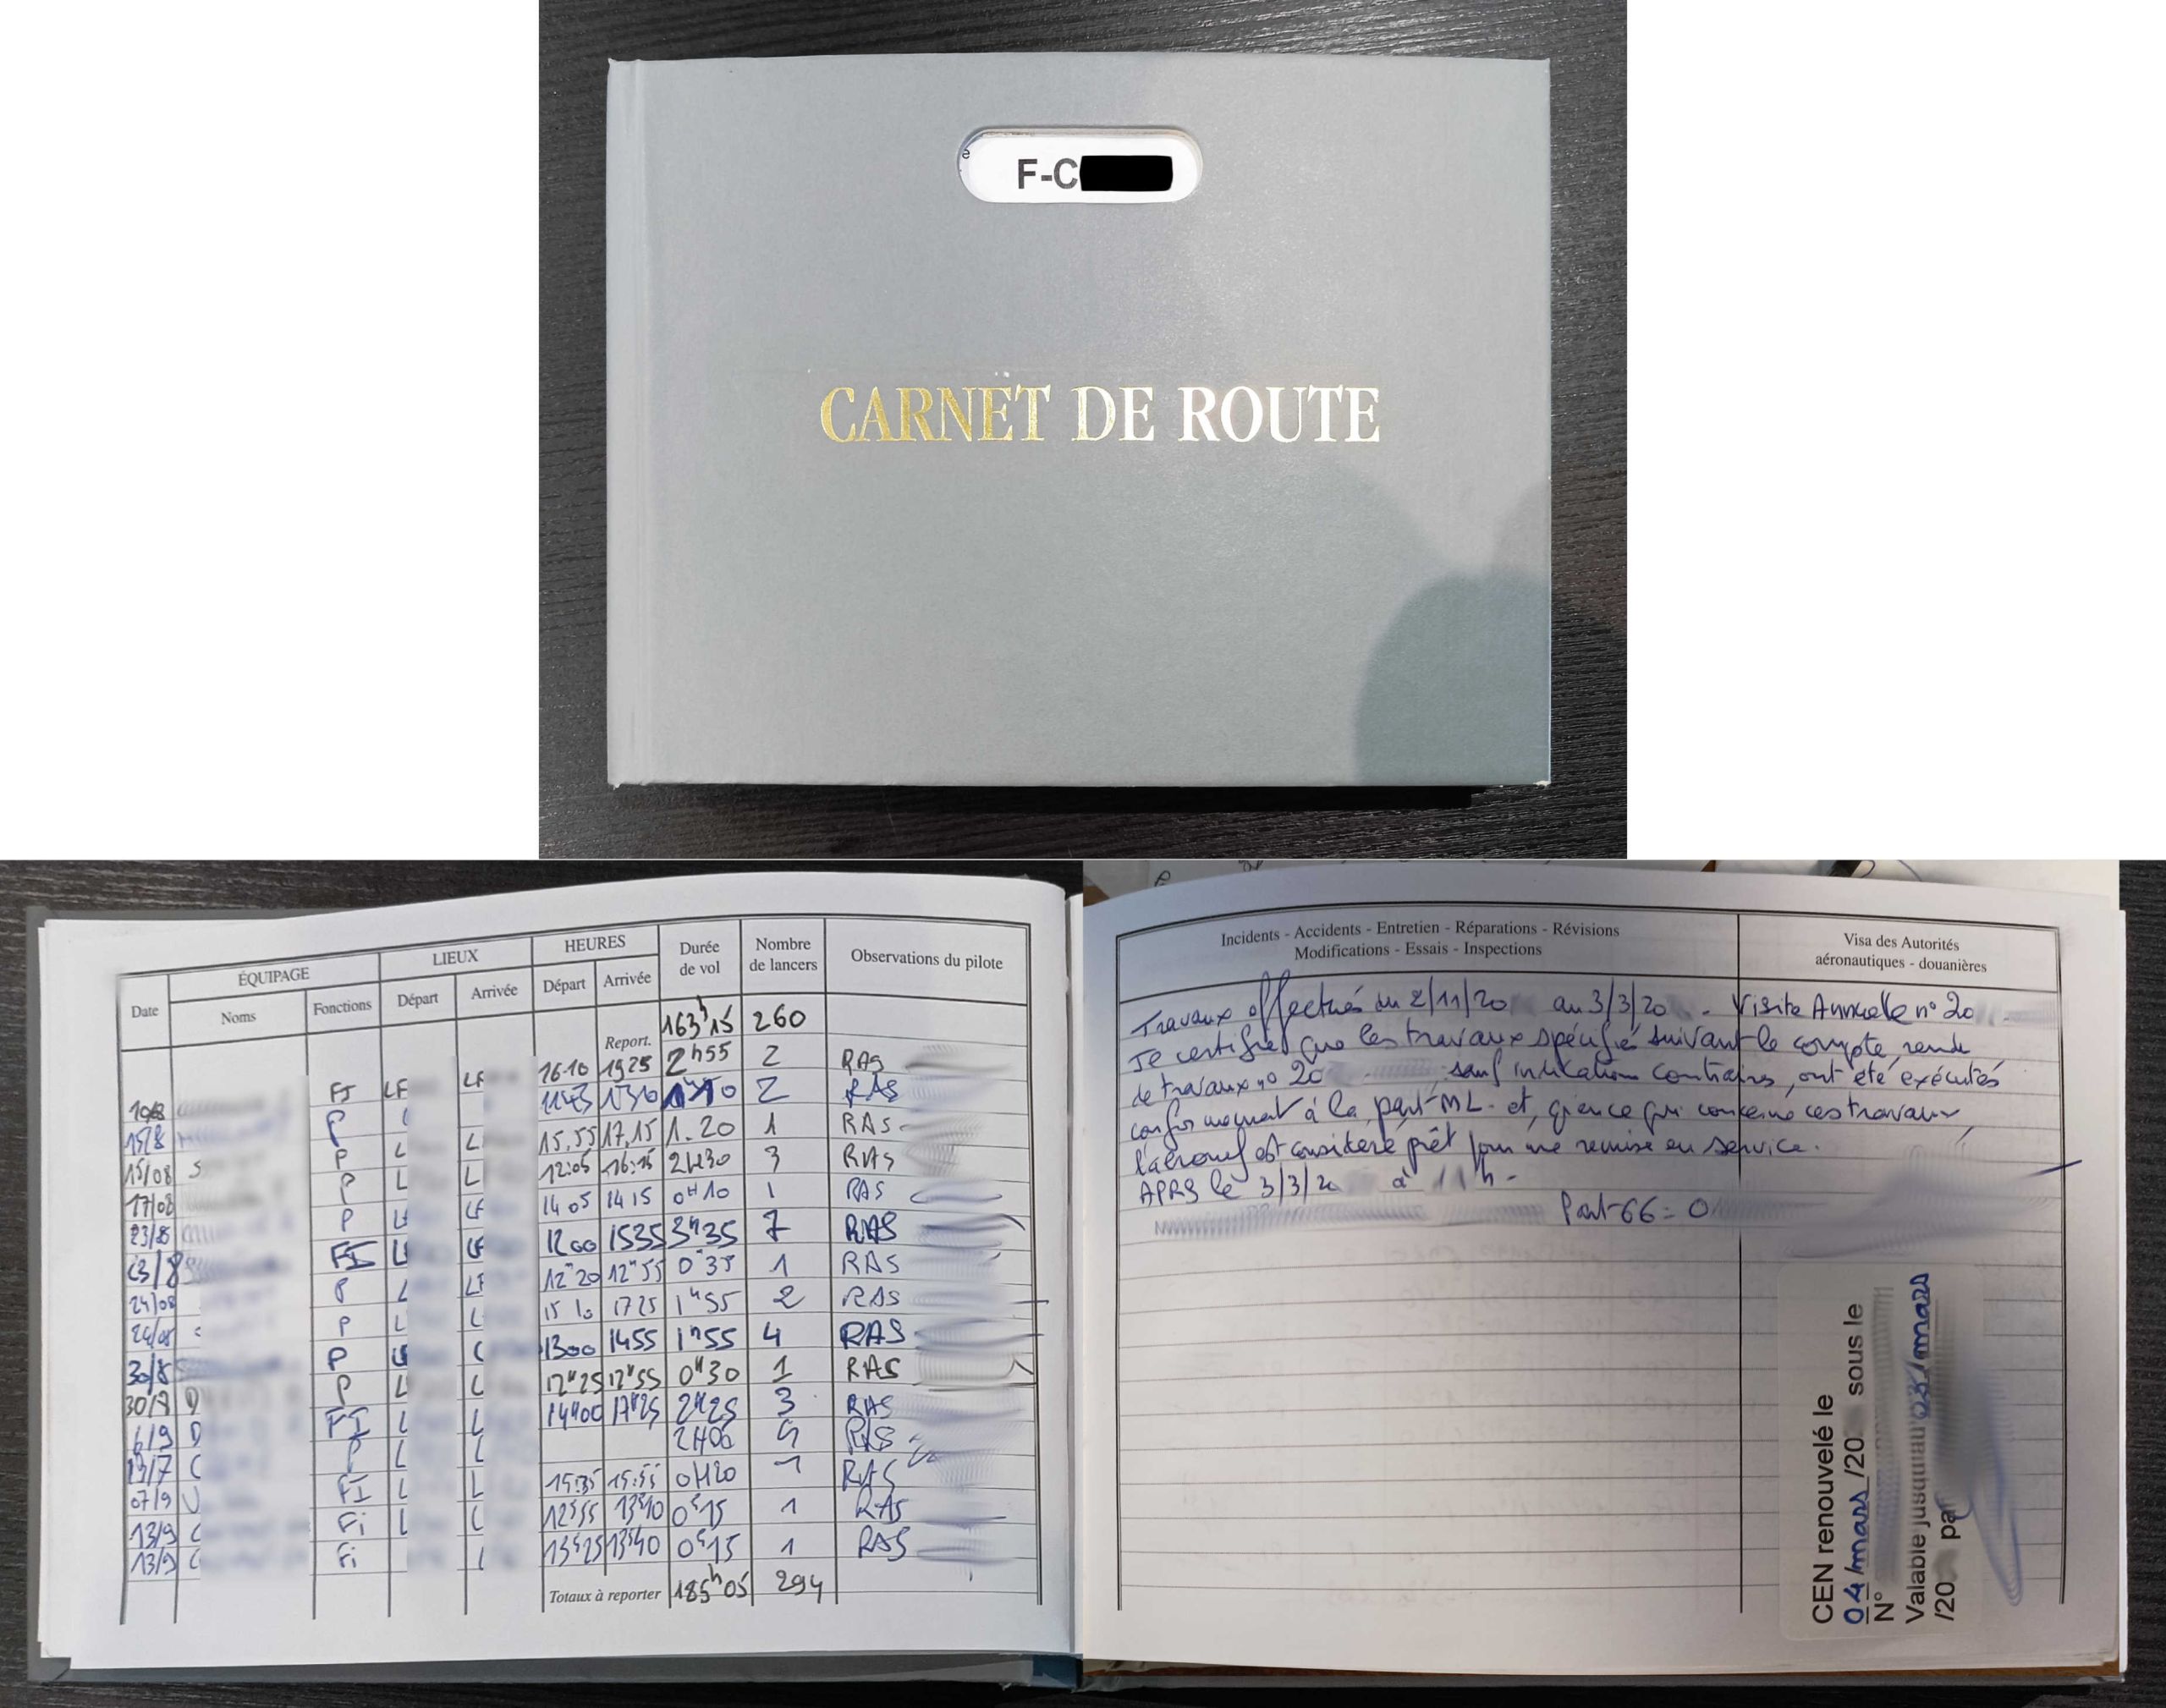 F-C
CARNET DE ROUTE
Date ÉQUIPAGE LIEUX HEURES Durée de vol Nombre de lancers Observations du pilote
Noms Fonctions Départ Arrivée Départ Arrivée
Report. 163h15 260
FI LF LF 16 10 1925 2h55 2 RAS
15/8 P 2 RAS
15/08 S P L L 15.55 17.15 1.20 1 RAS
17/08 P L L 12:05 2H30 3 RAS
23/8 P LF LF 14 05 14 15 0H10 1 RAS
23/8 FI LF LF 1200 1535 3h35 7 RAS
24/08 P L LF 12"20 12"55 0"35 1 RAS
P L L 15 10 17 25 1h55 2 RAS
30/8 P 1300 1455 1h55 4 RAS
P L L 12h25 12h55 0h30 1 RAS
6/9 D FI L L 14h00 17h25 2h25 3 RAS
P L L 2H00 RAS
07/9 FI L L 15:35 15:55 0H20 1 RAS
13/9 Fi L 12h55 0h15 1 RAS
13/9 Fi 13h25 13h40 0h15 1 RAS
Totaux à reporter 185h05 294
Incidents - Accidents - Entretien - Réparations - Révisions
Modifications - Essais - Inspections
Visa des Autorités
aéronautiques - douanières
Travaux effectués du 2/11/20 au 3/3/20 - Visite Annuelle n° 20
Je certifie que les travaux spécifiés suivant le compte rendu
de travaux n° 20 sauf indications contraires, ont été exécutés
conformément à la part-ML et, qu'en ce qui concerne ces travaux,
l'aéronef est considéré prêt pour une remise en service.
APRS le 3/3/20 à 11h -
Part-66 = 0
CEN renouvelé le
04/mars/20 sous le
N°
Valable jusqu'au 03/mars
/20 par